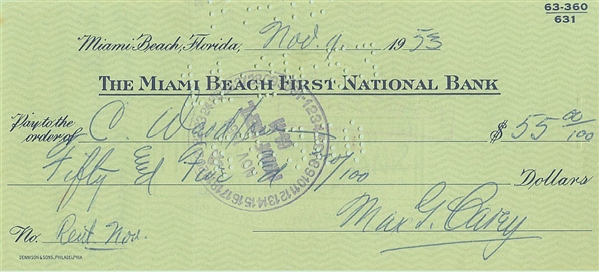 63-360
631
Miami Beach, Florida, Nov. 1953
THE MIAMI BEACH FIRST NATIONAL BANK
Pay to the order of C. $ 55 00/100
Fifty and Five /100 Dollars
No. Rent Nov. Max G. Carey
DENNISON & SONS, PHILADELPHIA